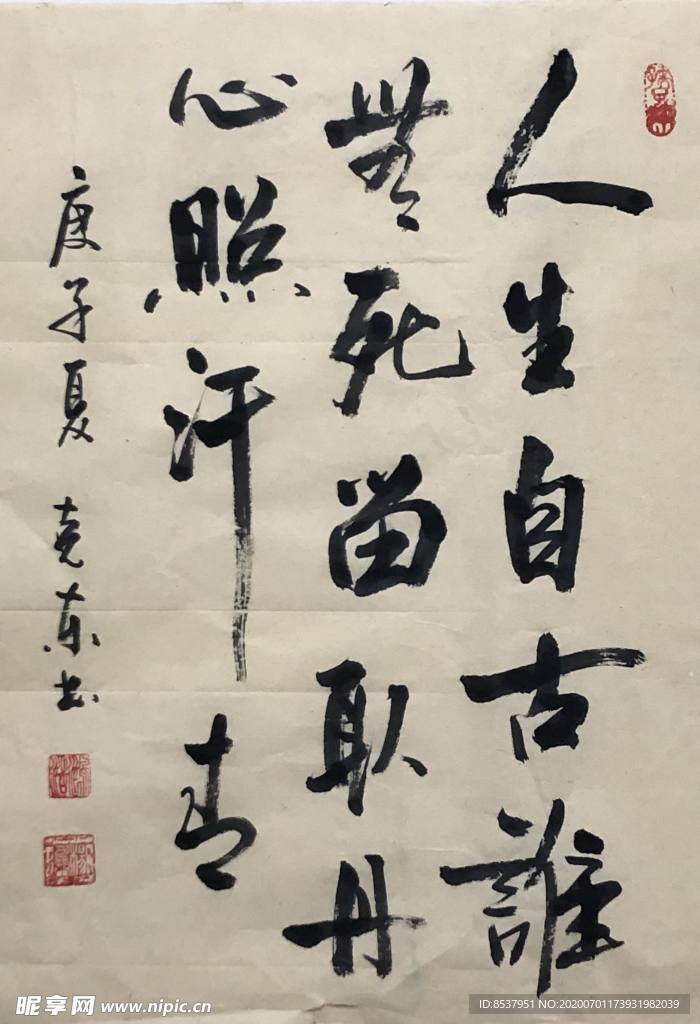 人生自古誰
無死留取丹
心照汗青
庚子夏 克东书
昵享网 www.nipic.cn
ID:8537951 NO:20200701173931982039